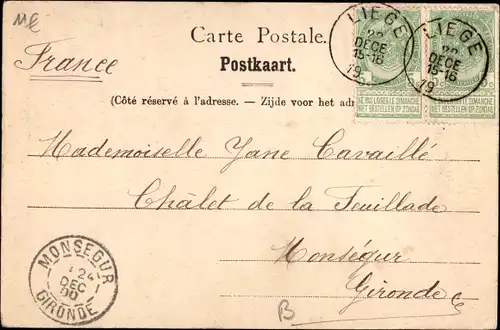 Carte Postale.
Postkaart.
France
(Côté réservé à l'adresse. — Zijde voor het adr
LIEGE
22
DECE
15-16
19
LIEGE
22
DECE
15-16
19
NE PAS LIVRER LE DIMANCHE
NIET BESTELLEN OP ZONDAG
NE PAS LIVRER LE DIMANCHE
NIET BESTELLEN OP ZONDAG
Mademoiselle Jane Cavaillé
Châlet de la Feuillade
Monségur
Gironde
MONSEGUR
24
DEC
00
GIRONDE
B